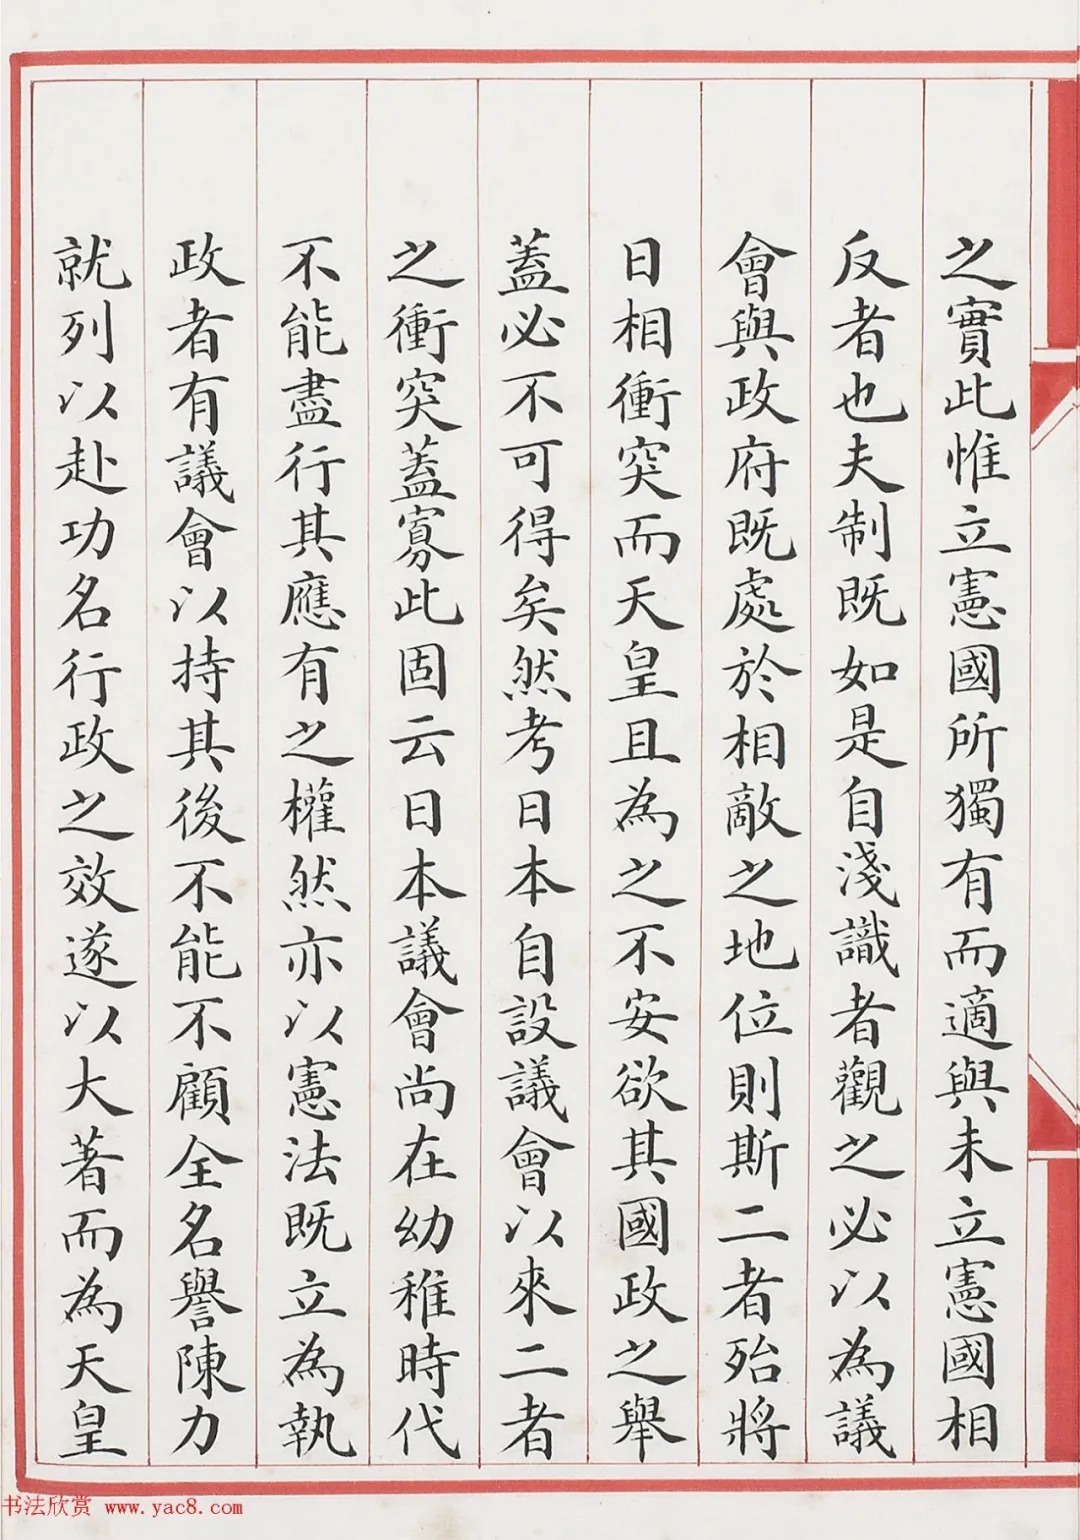 之實此惟立憲國所獨有而適與未立憲國相
反者也夫制既如是自淺識者觀之必以為議
會與政府既處於相敵之地位則斯二者殆將
日相衝突而天皇且為之不安欲其國政之舉
蓋必不可得矣然考日本自設議會以來二者
之衝突蓋寡此固云日本議會尚在幼稚時代
不能盡行其應有之權然亦以憲法既立為執
政者有議會以持其後不能不顧全名譽陳力
就列以赴功名行政之效遂以大著而為天皇
书法欣赏 www.yac8.com